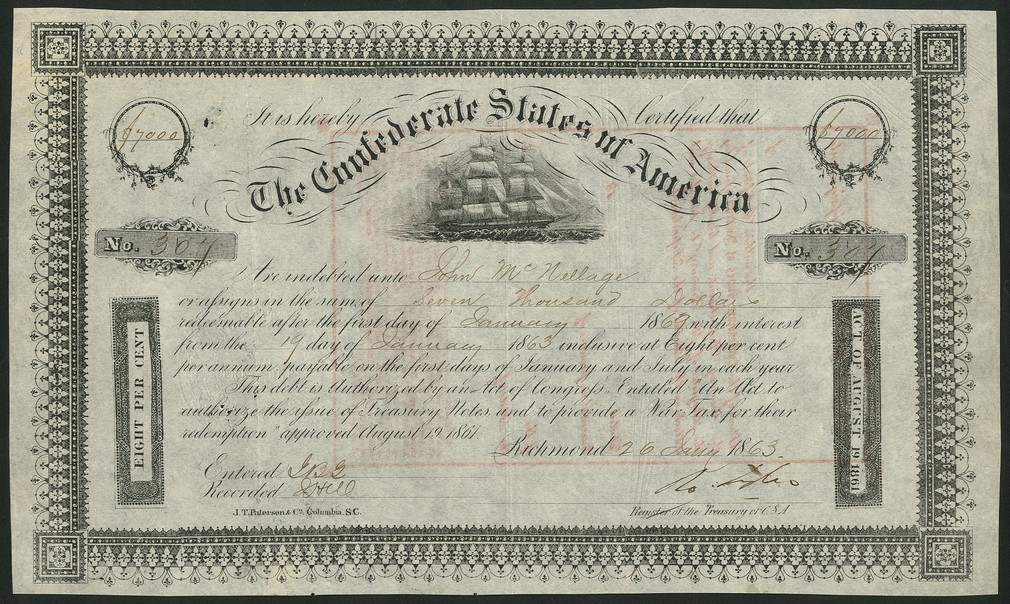 $7000 $7000
It is hereby Certified that
The Confederate States of America
No. 367 No. 367
Are indebted unto John McKellage
or assigns in the sum of Seven Thousand Dollars
redeemable after the first day of January 1869 with interest
from the 19 day of January 1863 inclusive at Eight per cent
per annum payable on the first days of January and July in each year
This debt is authorized by an Act of Congress Entitled "An Act to
authorize the issue of Treasury Notes and to provide a War Tax for their
redemption" approved August 19, 1861.
Richmond 26 Jany 1863.
Entered
Recorded
J.T. Paterson & Co. Columbia, S.C.
Register of the Treasury of C.S.A
EIGHT PER CENT
ACT OF AUGUST 19 1861